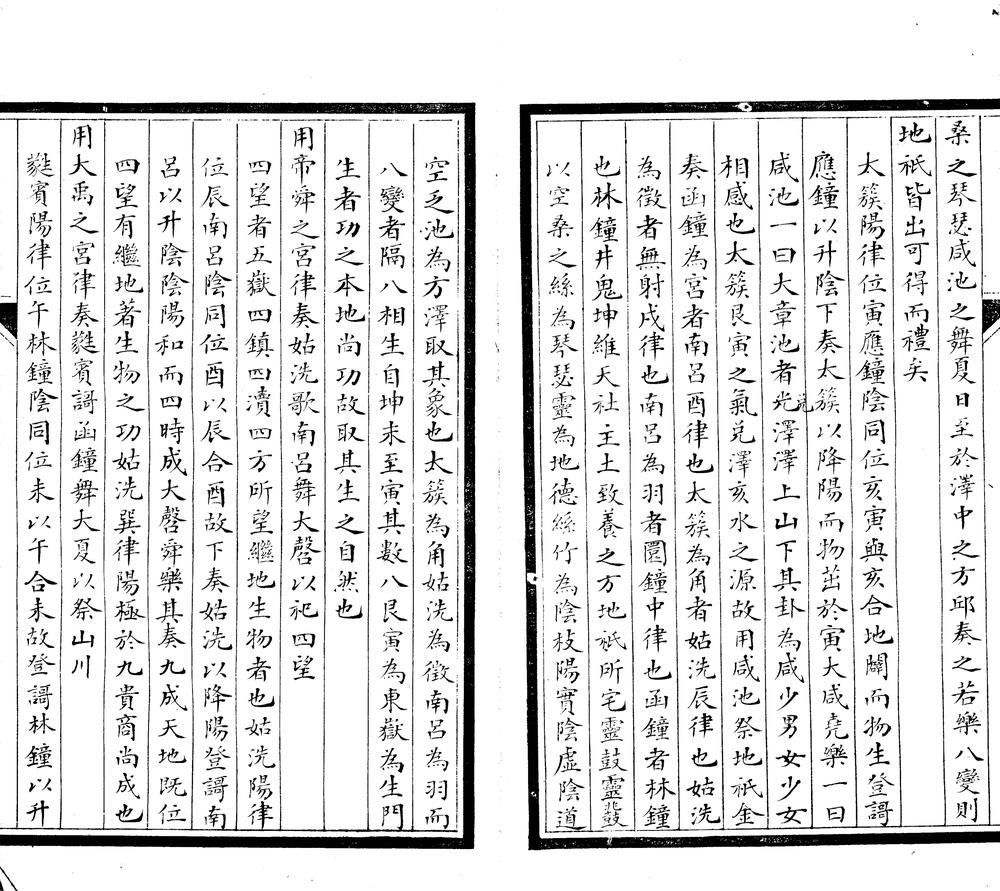 桑之琴瑟咸池之舞夏日至於澤中之方邱奏之若樂八變則
地祇皆出可得而禮矣
太簇陽律位寅應鐘陰同位亥寅與亥合地闢而物生登謌
應鐘以升陰下奏太簇以降陽而物茁於寅大咸堯樂一曰
咸池一曰大章池者兊澤澤上山下其卦為咸少男女少女
相感也太簇艮寅之氣兊澤亥水之源故用咸池祭地祇金
奏函鐘為宮者南呂酉律也太簇為角者姑洗辰律也姑洗
為徵者無射戌律也南呂為羽者圜鐘中律也函鐘者林鐘
也林鐘井鬼坤維天社主土致養之方地祇所宅靈鼓靈鼗
以空桑之絲為琴瑟靈為地德絲竹為陰枝陽實陰虛陰道
空乏池為方澤取其象也太簇為角姑洗為徵南呂為羽而
八變者隔八相生自坤未至寅其數八艮寅為東嶽為生門
生者功之本地尚功故取其生之自然也
用帝舜之宮律奏姑洗歌南呂舞大磬以祀四望
四望者五嶽四鎮四瀆四方所望繼地生物者也姑洗陽律
位辰南呂陰同位酉以辰合酉故下奏姑洗以降陽登謌南
呂以升陰陰陽和而四時成大磬舜樂其奏九成天地既位
四望有繼地著生物之功姑洗巽律陽極於九貴商尚成也
用大禹之宮律奏蕤賓謌函鐘舞大夏以祭山川
蕤賓陽律位午林鐘陰同位未以午合未故登謌林鐘以升